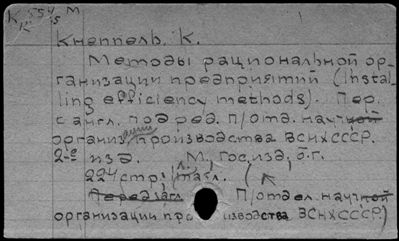 К 554 М
К 5
Кнеппель, К.
Методы рациональной ор-
ганизации предприятий (Instal-
ling efficiency methods). Пер.
с англ. под ред. П/отд. научной
организации производства ВСНХ СССР.
2-е изд. М., Гос. изд., б.г.
224 стр.; табл.
Перед загл. П/отдел научной
организации производства ВСНХ СССР)